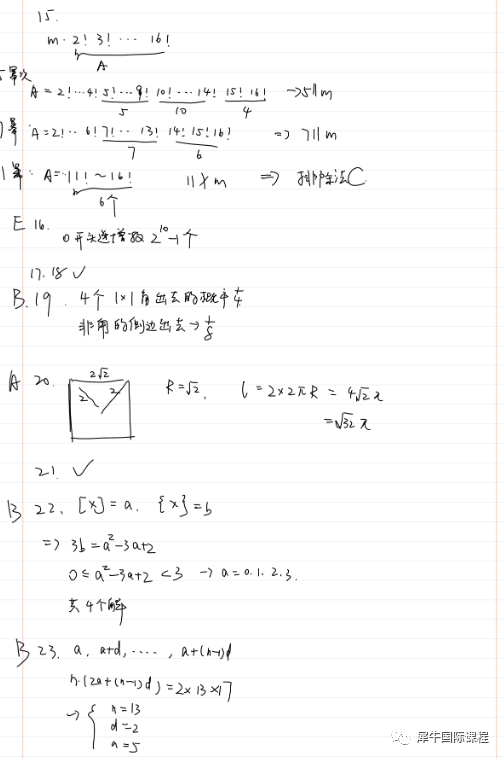 15.
m · 2! 3! ··· 16!
A
5幂次 A = 2!···4! 5!···9! 10!···14! 15! 16! → 5∥m
5 10 4
7幂: A = 2!··6! 7!··· 13! 14! 15! 16! ⇒ 7∥m
7 6
A = 11! ~ 16! 11∤m ⇒ 排除法C
6个
E 16.
0开头递增数 2^10-1个
17. 18 ✓
B. 19. 4个 1×1 角出去的概率 1/4
非角的侧边出去 → 1/8
A 20. 2√2 R = √2. l = 2×2πR = 4√2π
2 2 = √32 π
21. ✓
B 22. [x] = a. {x} = b
⇒ 3b = a²-3a+2
0 ≤ a²-3a+2 < 3 → a = 0. 1. 2. 3.
共4个解
B 23. a, a+d, ····, a+(n-1)d
n·(2a+(n-1)d) = 2×13×17
→ { n=13
d=2
a=5
犀牛国际课程